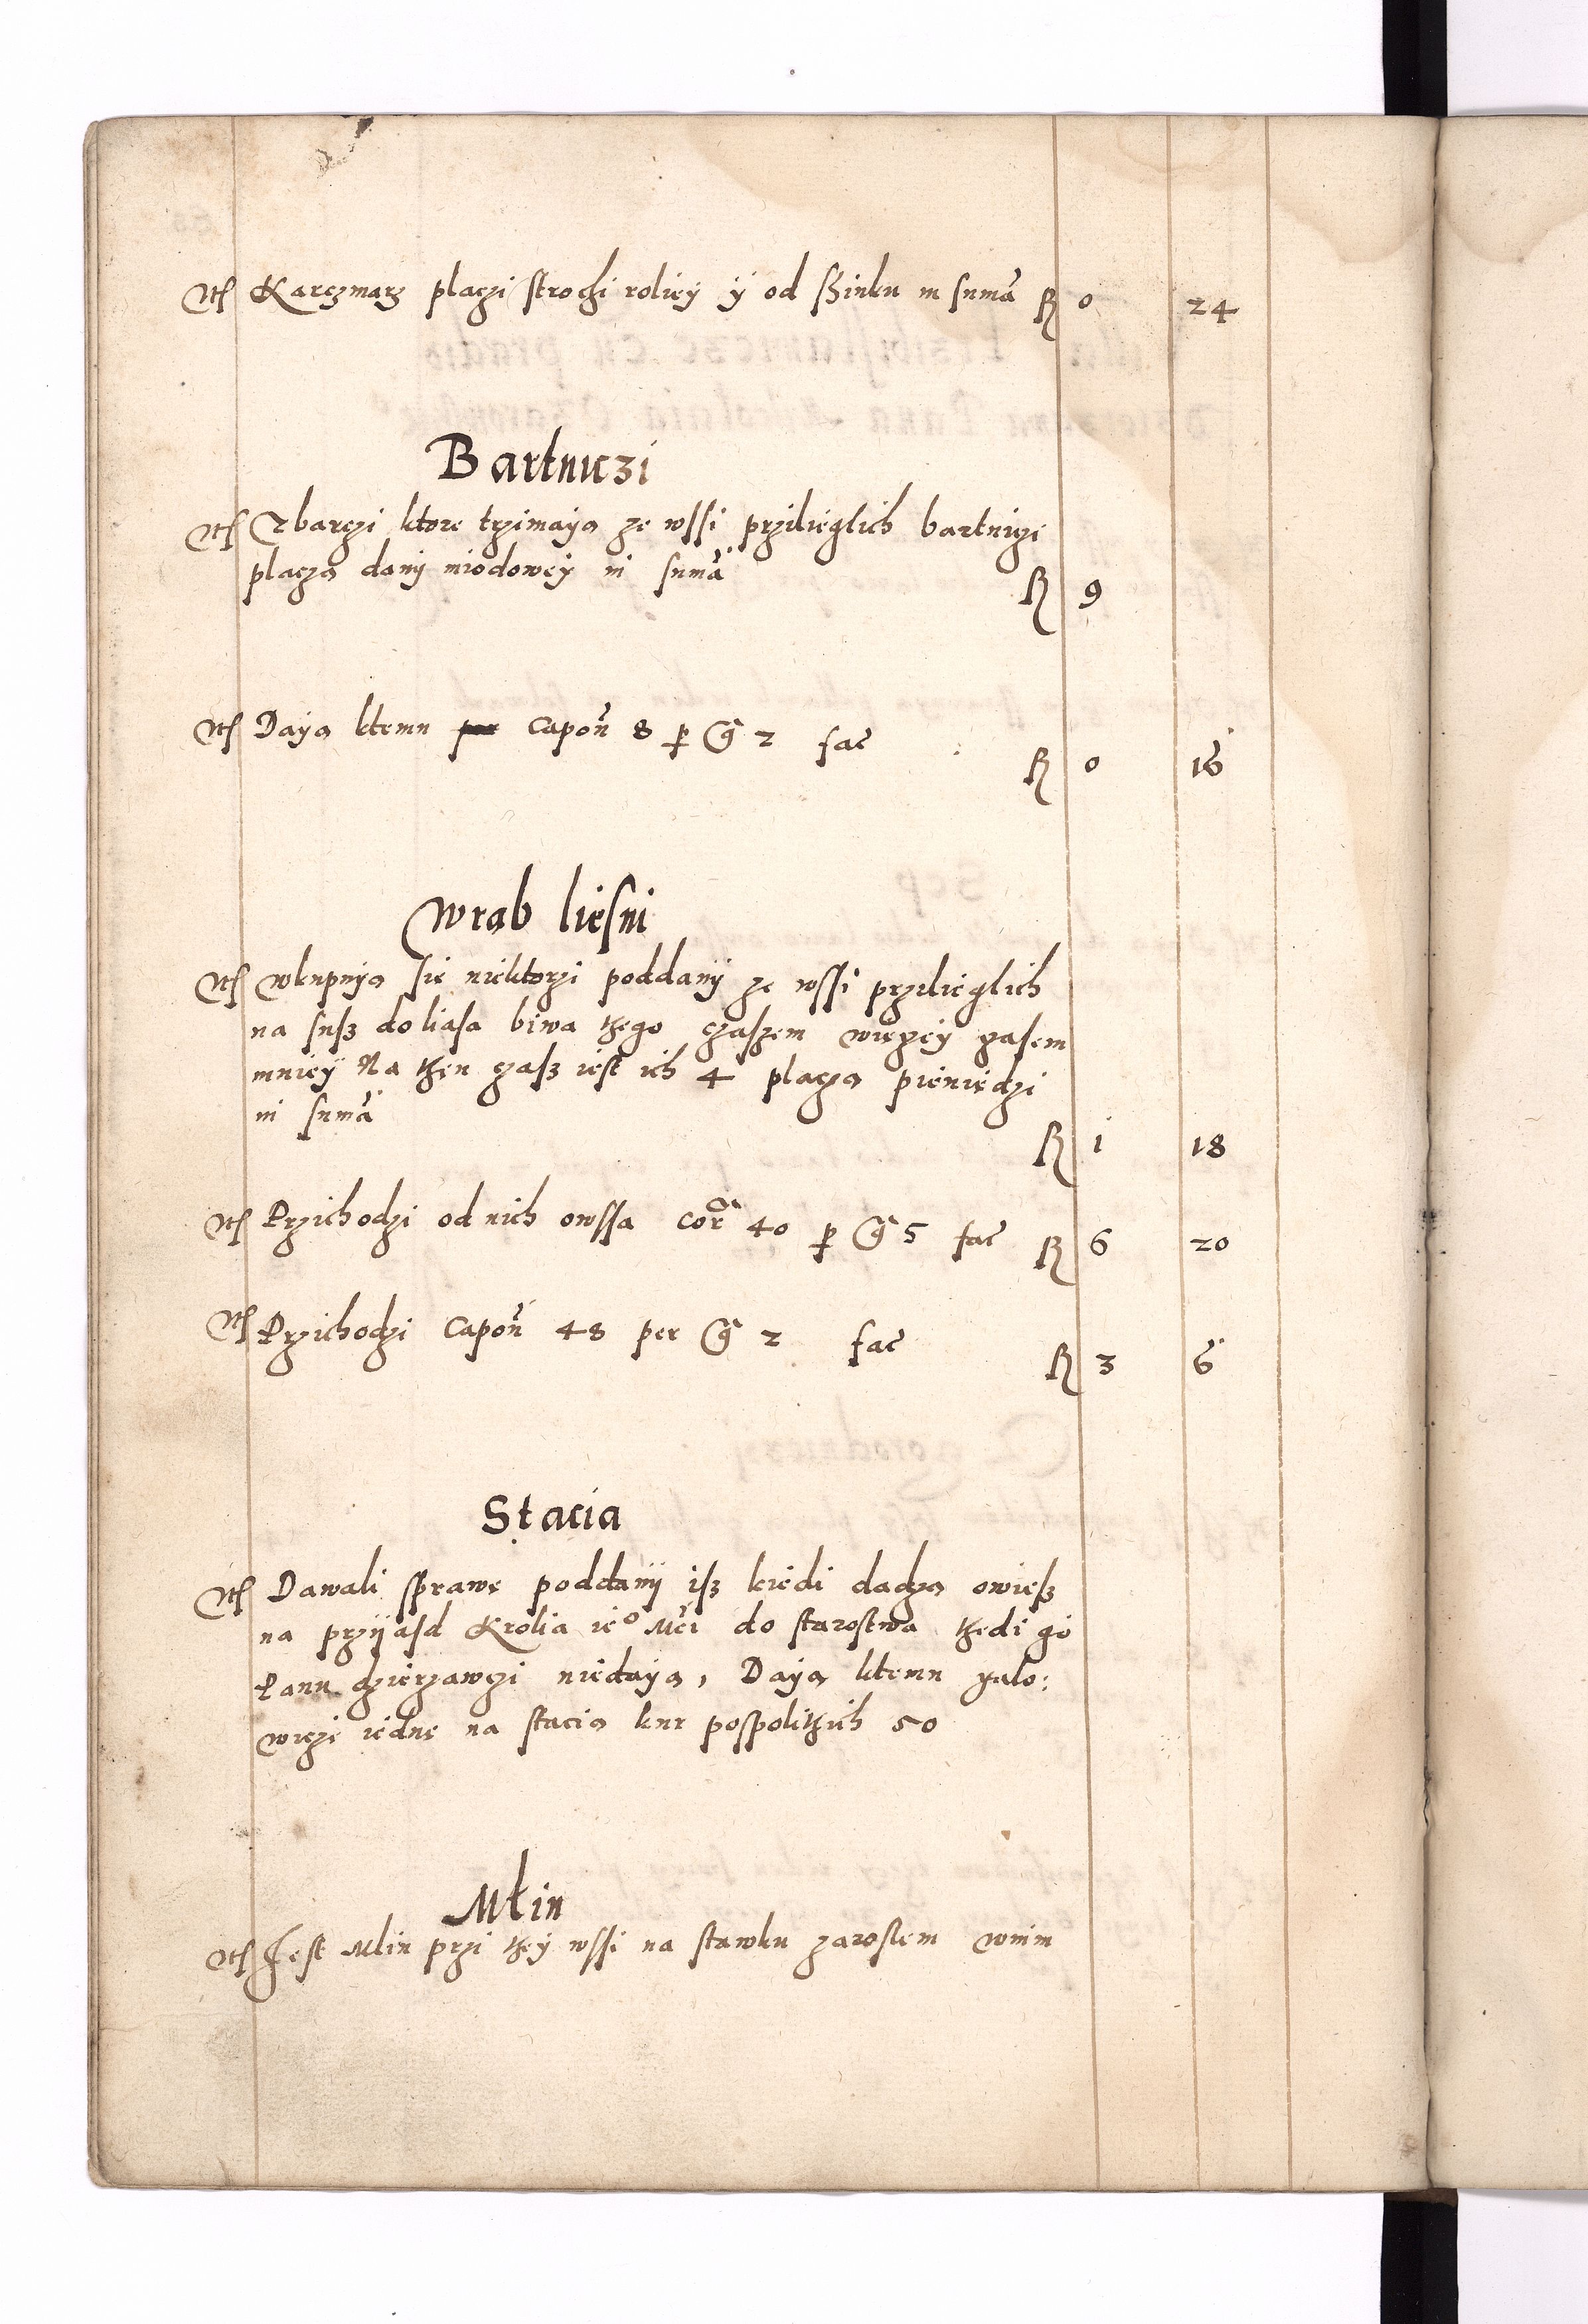 Itē Karczmarz placzi strochi roliey ÿ od szinku in sumā fl 0 24
Bartniczi
Itē Z barczi ktore trzimaya ze wssi przilieglich bartnicze
placza dany miodowey in sumā fl 9
Itē Daya ktemu capoñ 8 p g̃ 2 fac̃ fl 0 16
Wrab liesni
Itē wkupuya sie niektorzi poddany ze wssi przilieglich
na susz do liasa biwa thego czaszem wieczey czasem
mniey Na then czasz iest ich 4 placza pieniedzi
in sumā fl 1 18
Itē Przichodzi od nich owssa cor̃ 40 p g̃ 5 fac̃ fl 6 20
Itē Przichodzi capoñ 48 per g̃ 2 fac̃ fl 3 6
Stacia
Itē Dawali sprawe poddany isz kiedi dadza owiesz
na przyiasd Krolia ieº Mči do starostwa thedi go
Panu dzierzawczi niedaya, Daya ktemu yalo:
wicze iedne na stacia kur pospolithich 50
Młin
Itē Jest Mlin przi they wssi na stawku zarostem wnim